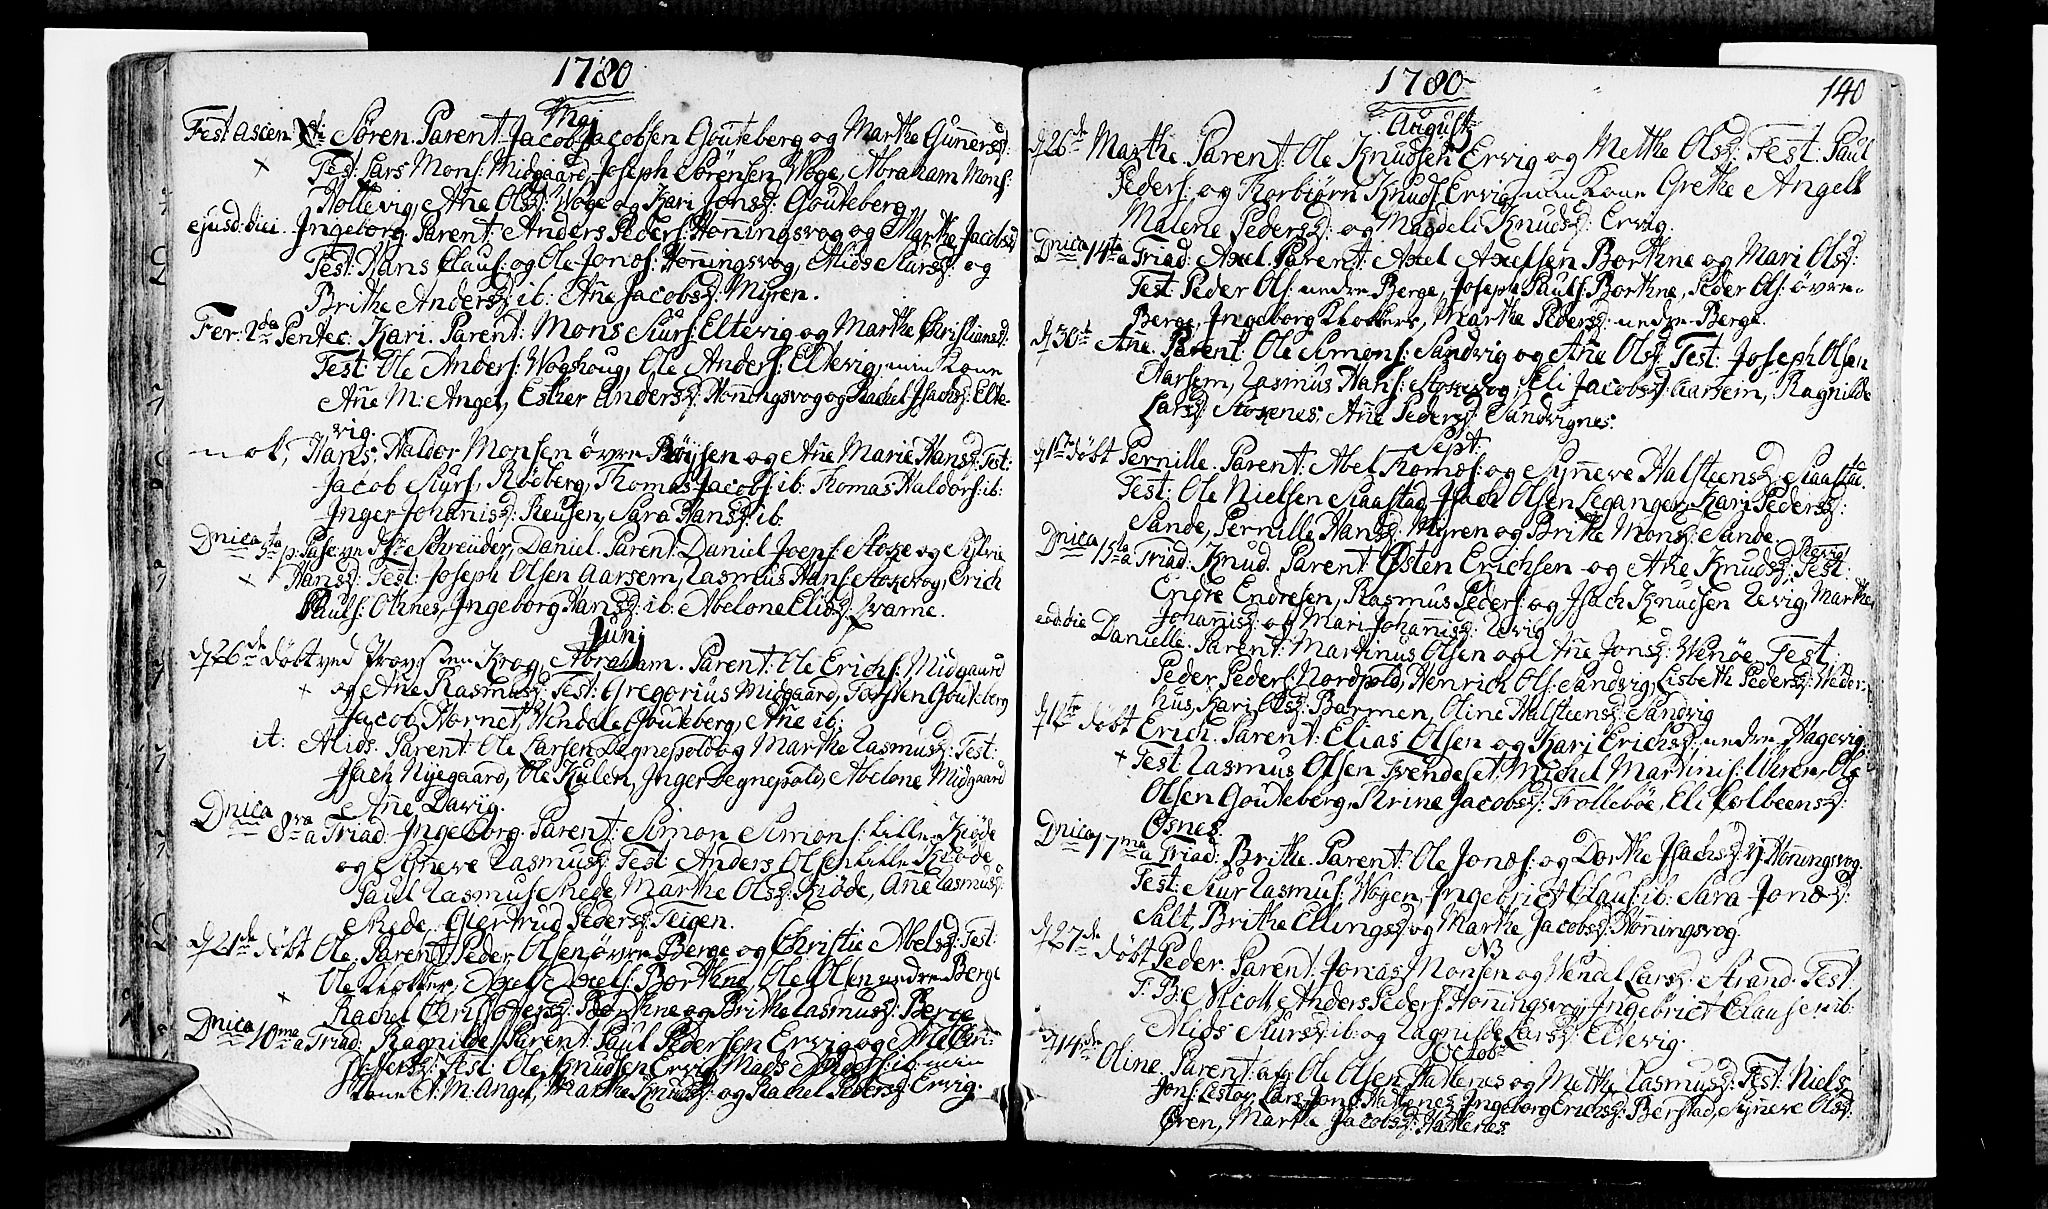 1780
Maj
Fest Ascen Xti Søren. Parent: Jacob Jacobsen Gouteberg og Marthe Gunnersd:
Test: Lars Mons: Midgaard, Joseph Sørensen Woge, Abraham Mons:
Hollevig, Ane Olsd: Woge og Kari Jonsd: Gouteberg
ejusd: diei Ingeborg. Parent: Anders Peders: Honningsvog og Marthe Jacobsd
Test: Hans Claus: og Ole Jonss: Honningsvog, Alids Siursd: og
Brithe Andersd: ib: Ane Jacobsd: Myren.
Fer: 2da Pentec. Kari. Parent: Mons Siurs: Eltevig og Marthe Christiansd:
Test: Ole Anders: Woghoug, Ole Anders: Eltevig, min Kone
Ane M: Angel, Esther Andersd: Honningsvog og Rachel Isachsd: Elte-
vig.
Hans: Haldor Monsen övre Röysen og Ane Marie Hansd: Test:
Jacob Siurs: Röeberg, Thomas Jacobs: ib: Thomas Haldors: ib:
Inger Johannisd: Reusen, Sara Hansd: ib:
Dnica 5ta p: Pasc: ved Hr Schreüder, Daniel. Parent: Daniel Stoxe og Sylvie
Hansd: Test: Joseph Olsen Aarsem, Rasmus Hans: Stoxevog, Erich
Pauls: Otnes, Ingeborg Hansd: ib: Abelone Elisd: Qvarne.
Junj
d 26de döbt ved Krog, Abraham. Parent: Ole Erichs: Midgaard
og Ane Rasmusd: Test: Gregorius Midgaard, Torsten Gouteberg
Jacob Hornet, Wendele Gouteberg, Ane ib:
it: Alids. Parent: Ole Larsen Legnepold og Marthe Rasmusd: Test:
Isach Nyegaard, Ole Kulen, Inger Legnepold, Abelone Midgaard
Ane Davig.
Dnica 8va a Triad: Ingeborg. Parent: Simon Simons: Lille Kiöde
og Synneve Rasmusd: Test: Anders Olsen Lille Kiöde
Paul Rasmus: Skede, Marthe Olsd: Kiöde, Ane Rasmusd:
Skede, Giertrud Pedersd: Teigen.
d 21de döbt Ole. Parent: Peder Olsen övre Berge og Christie Abelsd: Test:
Ole Klotter, Axel Axels: Borthne, Ole Olsen nedre Berge
Rachel Christophersd: Borthne og Brithe Rasmusd: Berge
Dnica 10ma a Triad: Ragnilde. Parent: Paul Pedersen Ervig og
Pedersd: Test: Ole Knudsen Ervig, Mads ib: min
Kone A: M: Angel, Marthe Knudsd: og Rachel Pedersd: Ervig.
1780
140
August
d 20de Marthe. Parent: Ole Knudsen Ervig og Methe Olsd: Test: Paul
Peders: og Thorbiörn Knuds: Ervig, min Kone Grethe Angell
Malene Pedersd: og Magdeli Knudsd: Ervig.
Dnica 14ta a Triad: Axel. Parent: Axel Axelsen Borthne og Mari Olsd:
Test: Peder Ols: nedre Berge, Joseph Pauls: Borthne, Peder Ols: övre
Berge, Ingeborg Klotters, Marthe Pedersd: nedre Berge.
d 30te Ane. Parent: Ole Simons: Sandvig og Ane Olsd: Test: Joseph Olsen
Aarsem, Rasmus Hans: Stoxevog, Eli Jacobsd: Aarsem, Ragnilde
Larsd: Stoxenes, Ane Pedersd: Sandvignes.
Sept:
d 1ste döbt Pernille. Parent: Abel Thomæs: og Synneve Halsteensd: Staastad.
Test: Ole Nielsen Staastad, Isach Olsen Leganger, Kari Pedersd:
Sande, Pernille Hansd: Myren og Brithe Monsd: Sande.
Dnica 15ta a Triad: Knud. Parent: Østen Erichsen og Ane Knudsd: Rævig Test:
Endre Endresen, Rasmus Peders: og Isach Knudsen Revig, Marthe
Johannisd: og Mari Johannisd: Revig
eod: die Danielle. Parent: Martinus Olsen og Ane Jonsd: Wenöe. Test:
Peder Peders: Nordpold, Henrich Ols: Sandvig, Lisbeth Pedersd: Weder-
hus, Kari Olsd: Barmen, Oline Halsteensd: Sandvig
d 12te döbt Erich. Parent: Elias Olsen og Kari Erichsd: nedre Hagevig
Test: Rasmus Olsen Frendeset, Michel Martinis: Uhren, Ole
Olsen Gouteberg, Thrine Jacobsd: Trolleböe, Eli Colbeensd:
Osnes.
Dnica 17ma a Triad: Brithe. Parent: Ole Jonæs: og Dorthe Isachsd: Y: Honningsvog.
Test: Siur Rasmus: Wogen, Ingebrict Claus: ib: Sara Jonæsd:
Salt, Brithe Ellingsd: og Marthe Jacobsd: Honningsvog.
NB
d 27de döbt Peder. Parent: Joneas Monsen og Wendel Larsd: Strand. Test:
F: B: E Nicoll, Anders Peders: Honningsvog, Ingebrict Clausen ib:
Alids Siursd: ib: og Ragnilde Larsd: Eltevig.
Octob:
d 14de Oline. Parent: afg: Ole Olsen Hatlenes og Methe Rasmusd: Test: Niels
Jons: Lestoe, Lars Jons: Hatlenes, Ingeborg Erichsd: Berstad, Synneve Olsd:
Øren, Marthe Jacobsd: Hatlenes.